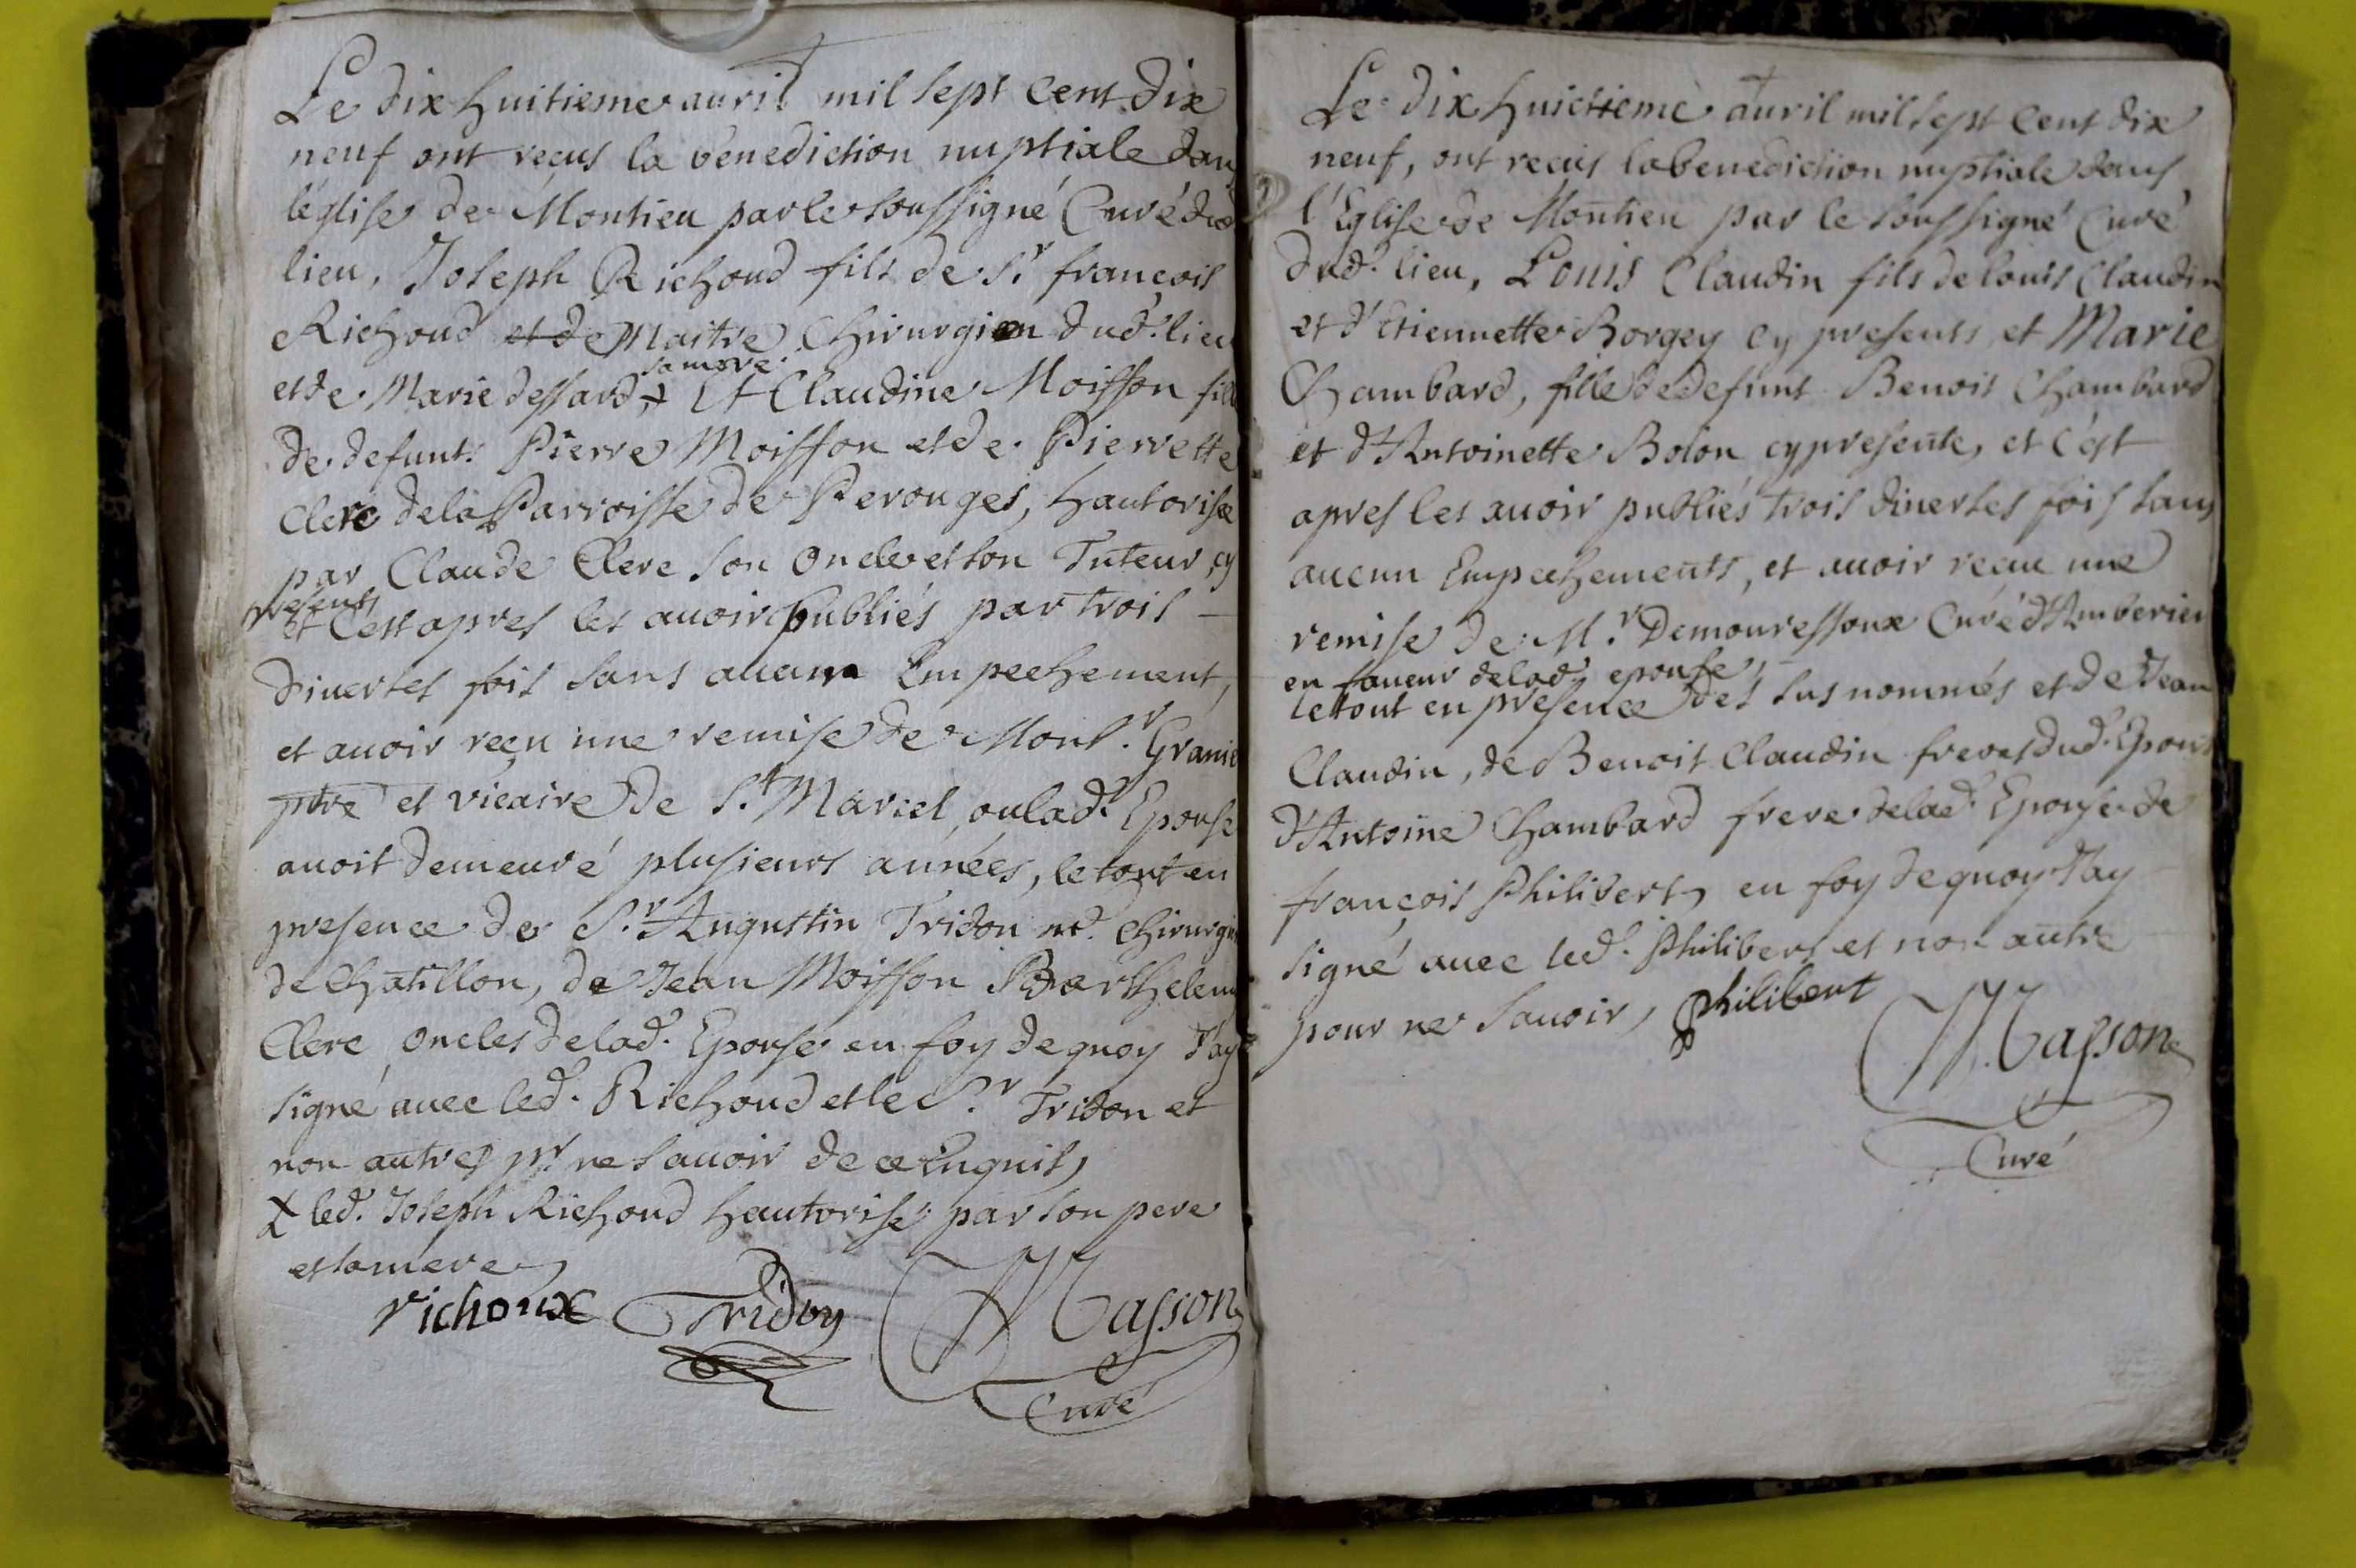 Le dix huitieme auril mil sept cent dix
neuf ont reçus la benediction nuptiale dans
l'église de Montieu par le soussigné Curé dud.
lieu, Joseph Richoud fils de Sr. françois
Richoud et de Maitre Chirurgien dud. lieu
sa mere
et de Marie dessard, + Et Claudine Moisson fille
de defunt Pierre Moisson et de Pierrette
Clere de la Parroisse de Perouges, hautorisée
par Claude Clere son Oncle et son Tuteur, cy
presents
et C'est apres les auoir publiés par trois
diuerses fois sans aucun Empechement,
et auoir reçu une remise de Monsr. Granie
ptre et vicaire de St. Marcel, ou lad. Epouse
auoit demeuré plusieurs années, le tout en
presence de Sr. Augustin Tridon me. Chirurgien
de Chatillon, de Jean Moisson Barthelemy
Clere Oncles de lad. Epouse en foy de quoy J'ay
signé auec led. Richoud et le Sr. Tridon et
non autres pr. ne sauoir de ce Enquis,
+ led. Joseph Richoud hautorisé par son pere
et sa mere,
richoux Tridon Masson
Curé
Le dix huictieme auril mil sept cent dix
neuf, ont reçus la benediction nuptiale dans
l'Eglise de Montieu par le soussigné Curé
dud. lieu, Louis Claudin fils de louis Claudin
et d'Etiennette Borgey cy presents, et Marie
Chambard, fille de defunt Benoit Chambard
et d'Antoinette Bolon cy presente, et C'est
apres les auoir publiés trois diuerses fois sans
aucun Empechements, et auoir reçu une
remise de Mr. Demouressoux Curé d'Amberieu
en faueur de lad. epouse,
le tout en presence des sus nommés et de Jean
Claudin, de Benoit Claudin freres dud. Epoux
d'Antoine Chambard frere de lad. Epouse de
françois Philibert, en foy de quoy J'ay
signé auec led. Philibert et non autre
pour ne sauoir, philibert
Masson
Curé